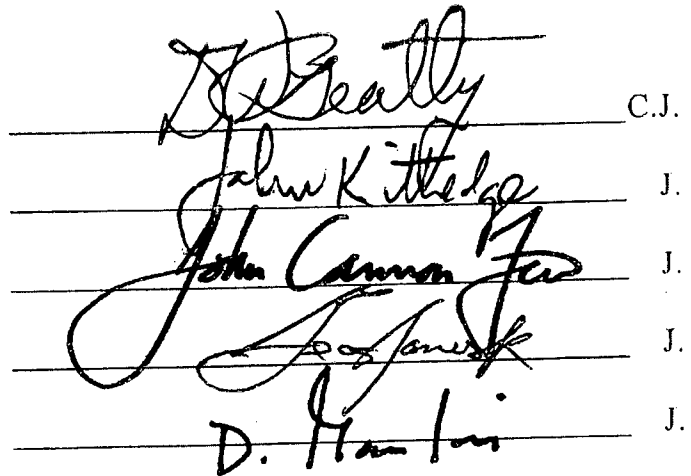 D W Beatty C.J.
John Kittredge J.
John Cannon Few J.
J.
D. J.